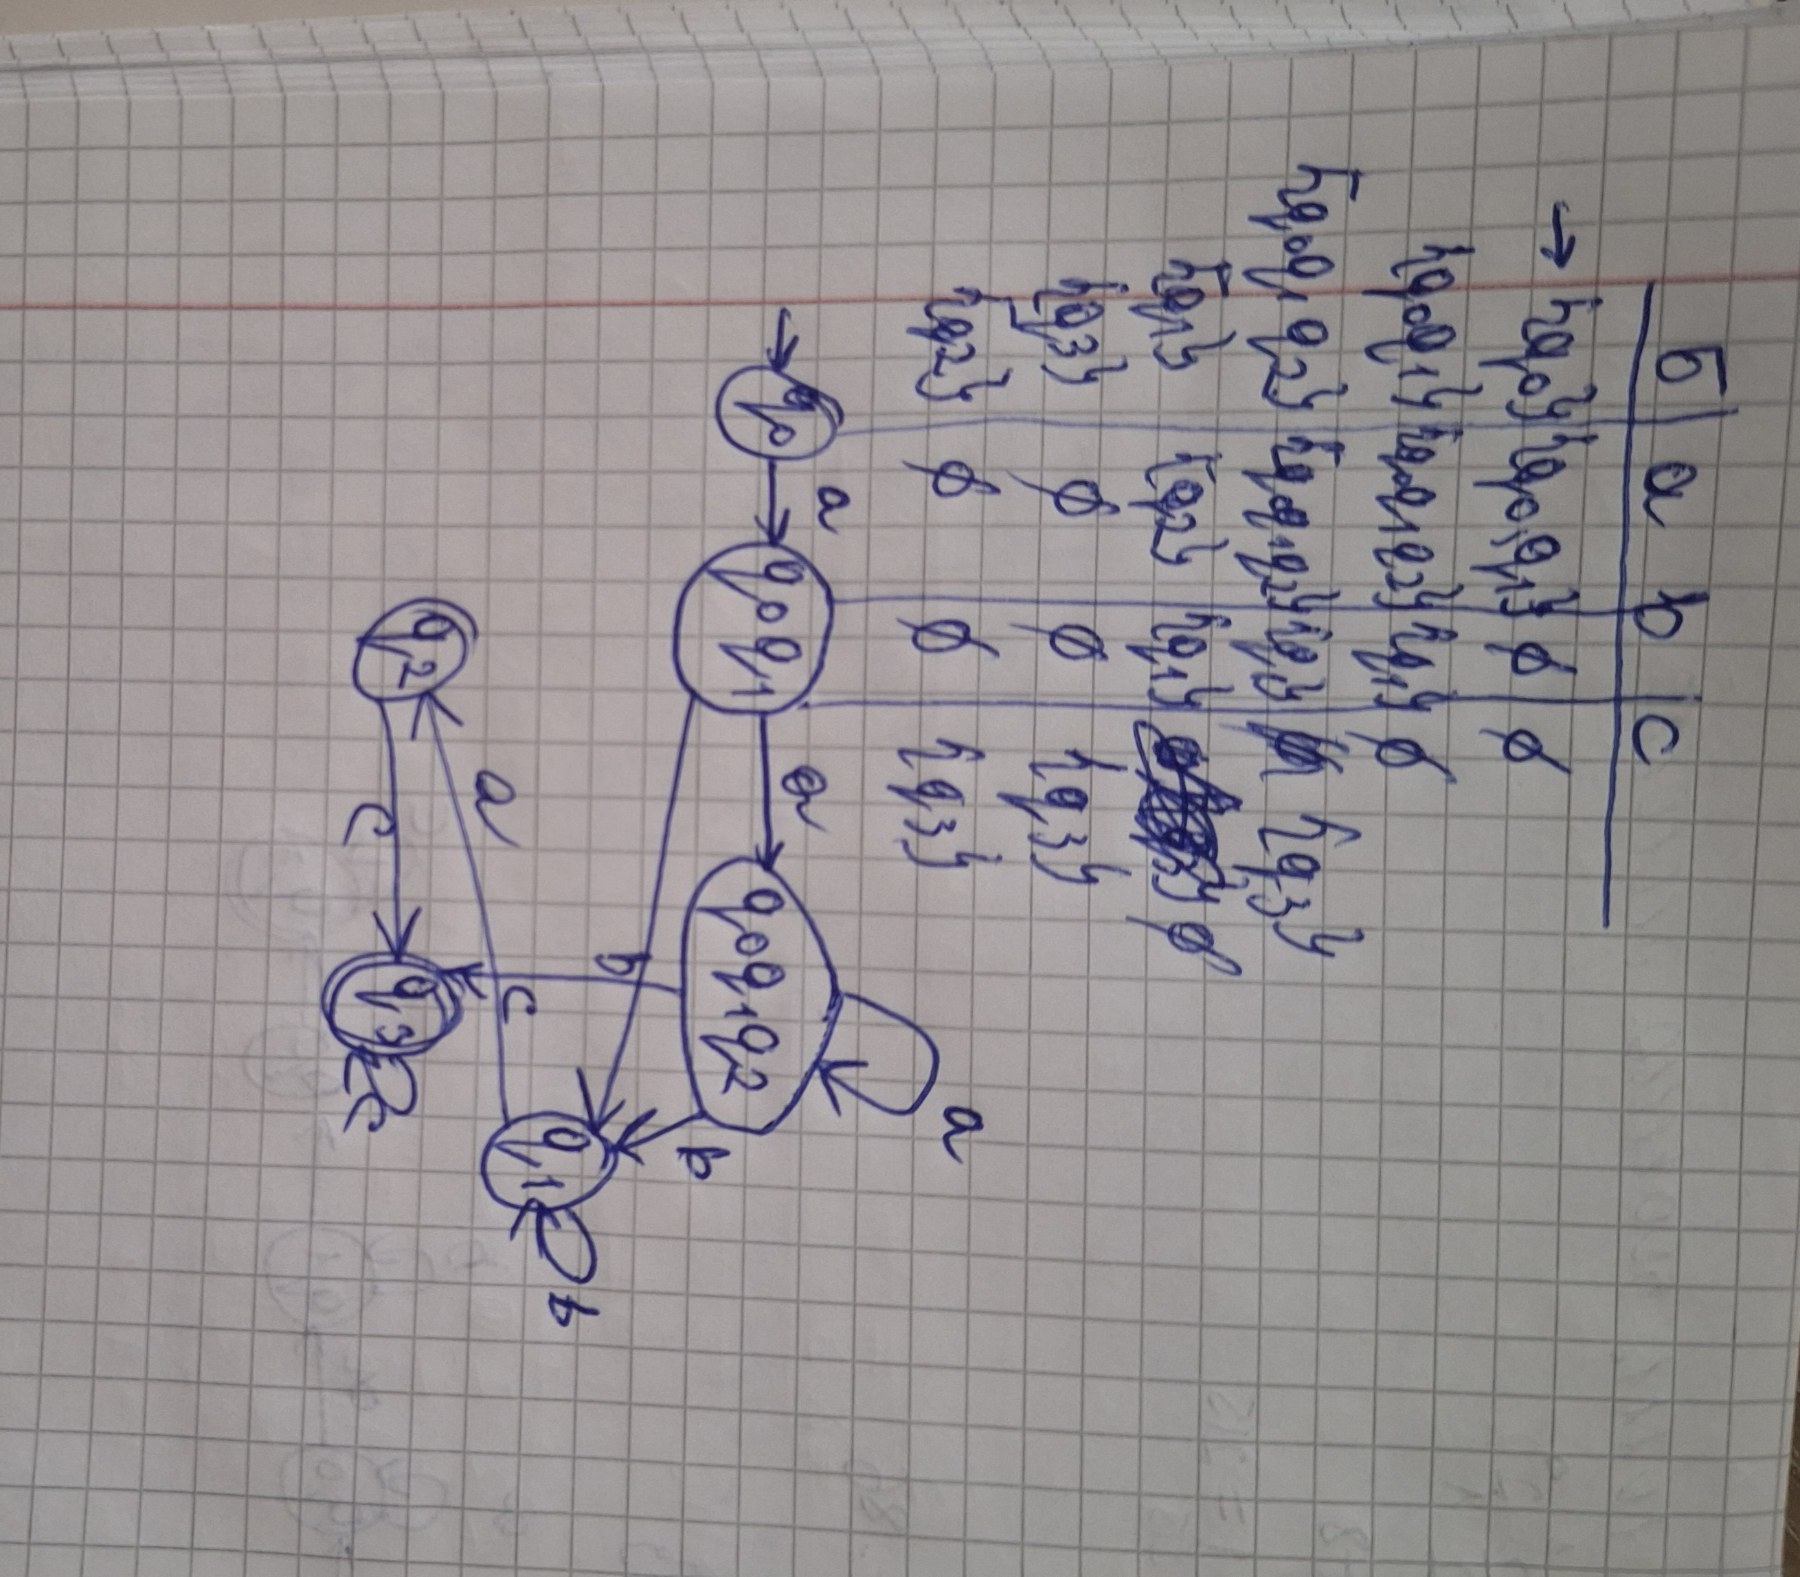 δ a b c
→ {q0} {q0,q1} ∅ ∅
{q0q1} {q0q1q2} {q1} ∅
{q0q1q2} {q0q1q2} {q1} {q3}
{q1} {q2} {q1} ∅
{q3} ∅ ∅ {q3}
{q2} ∅ ∅ {q3}
a
q0 a q0q1 a q0q1q2
b b
q1 b
a c
q2 c q3 c